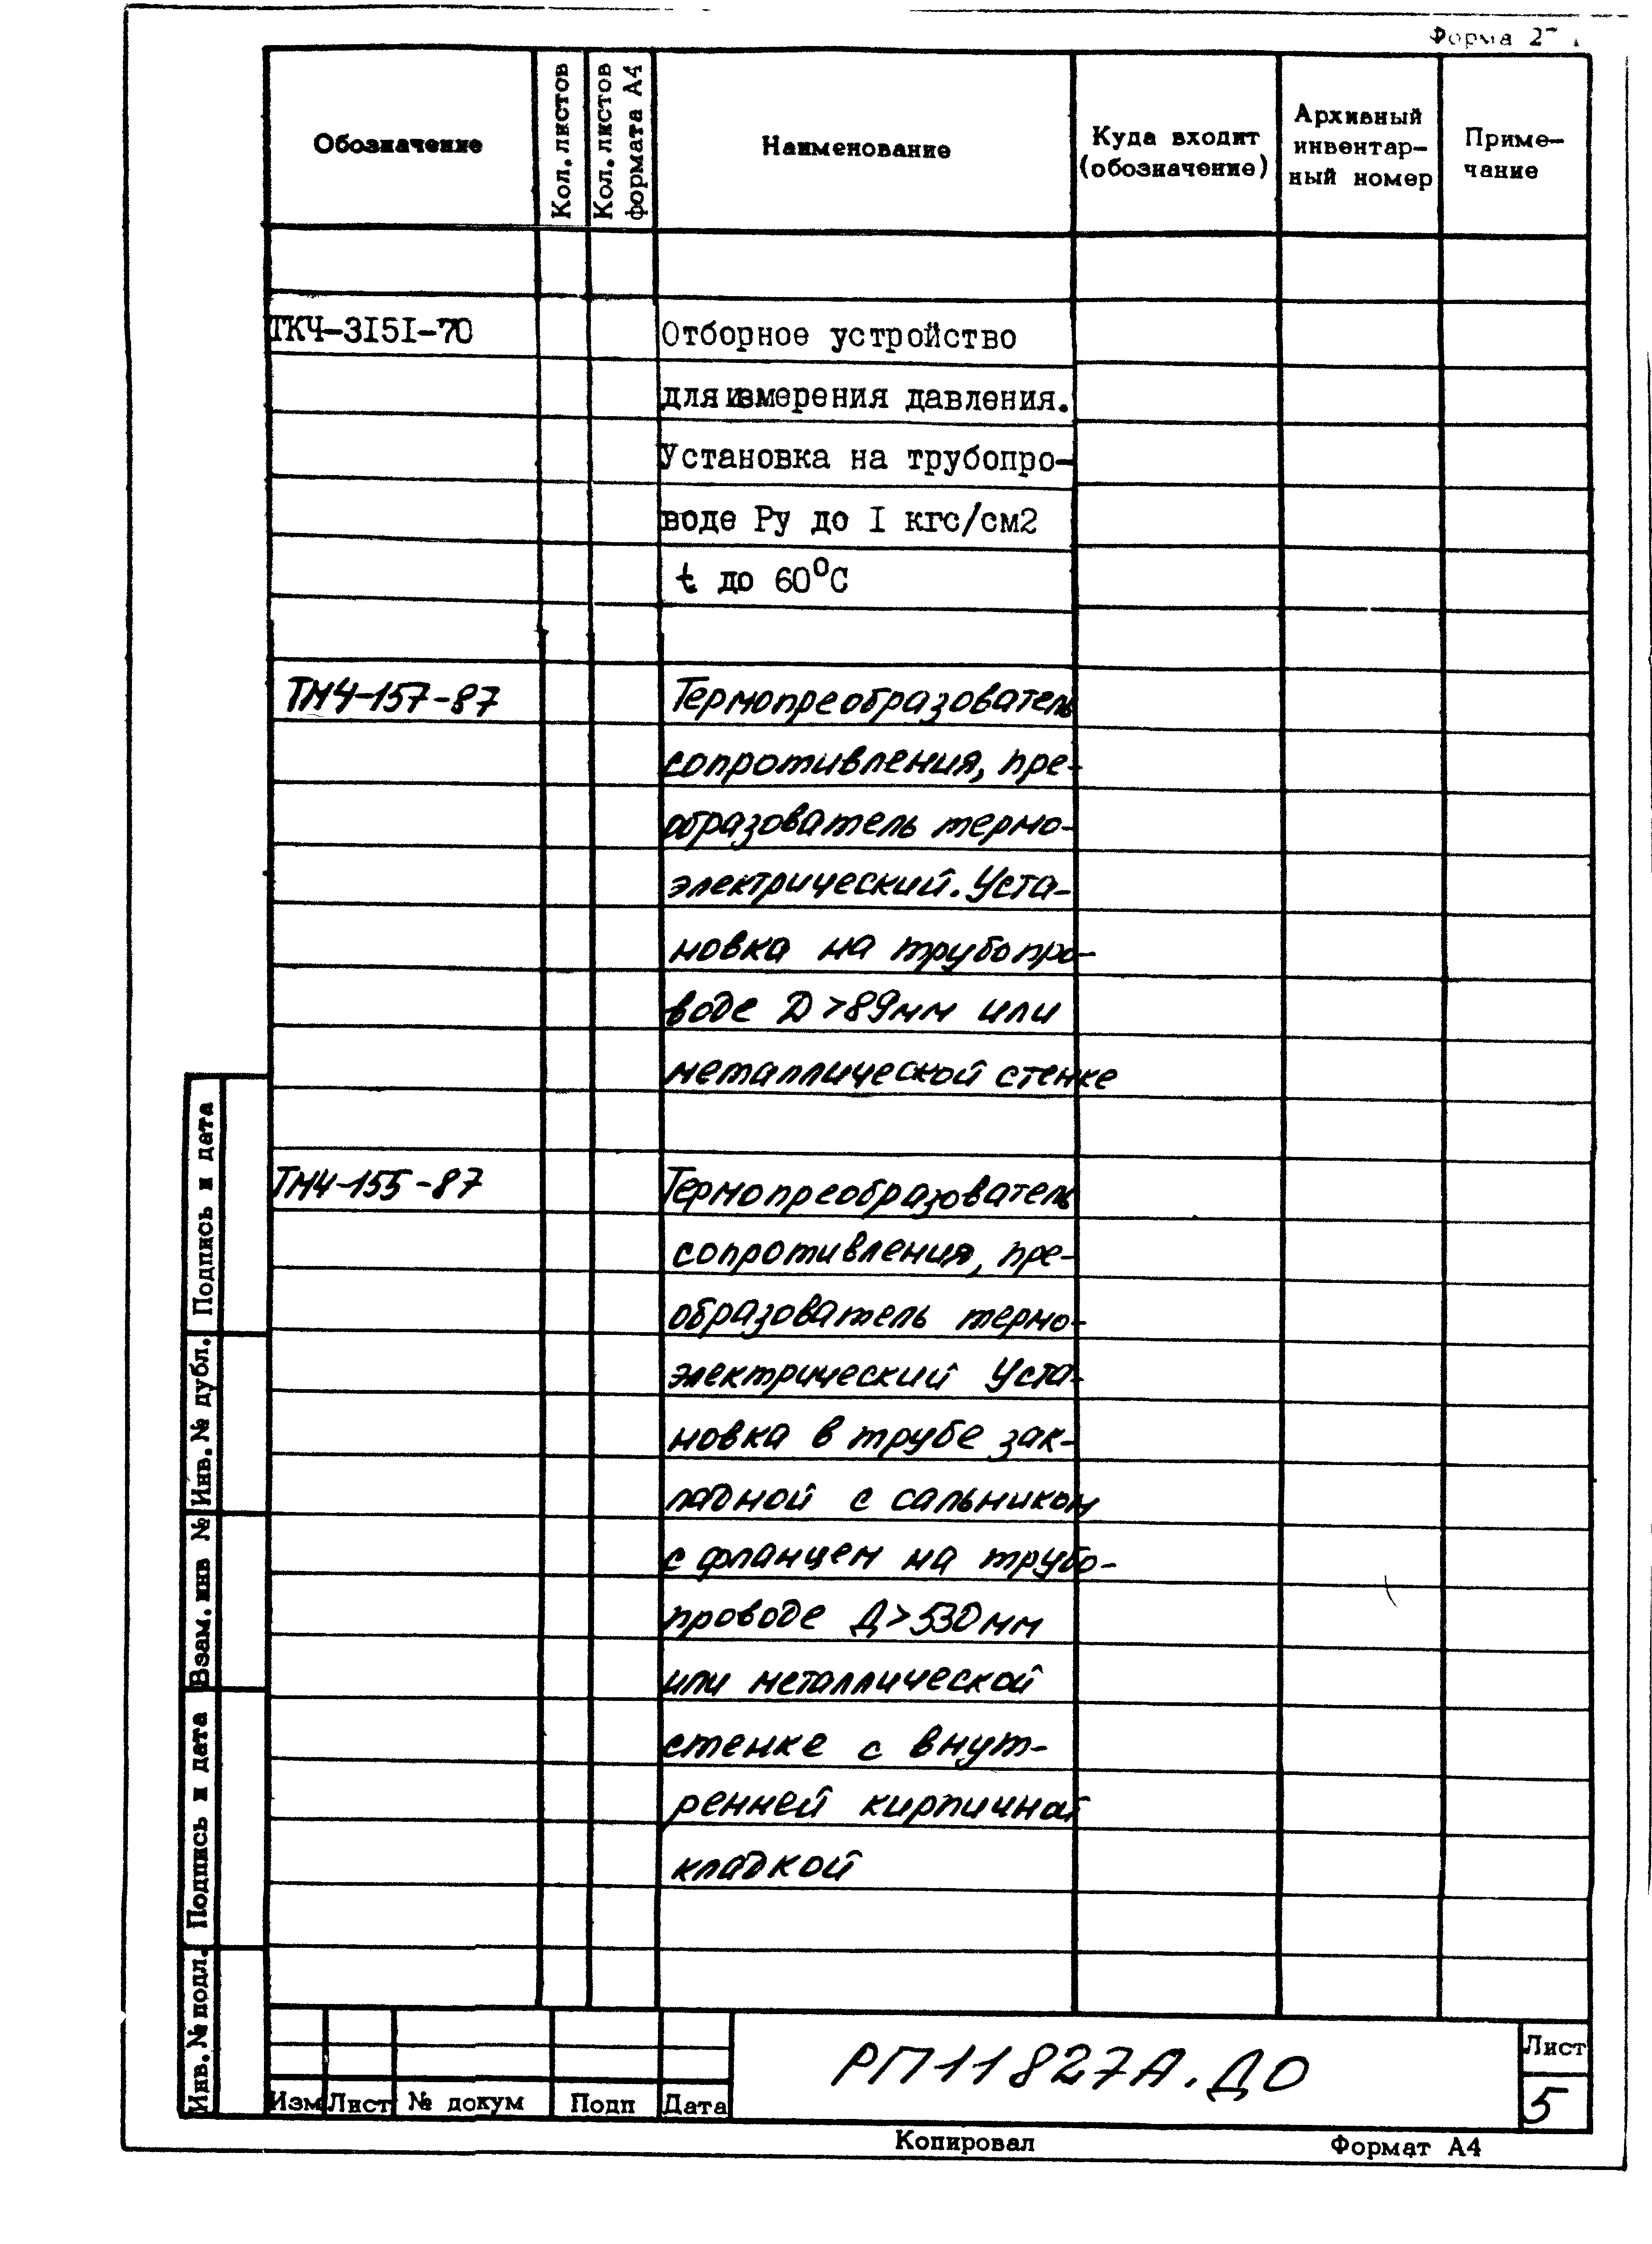 Форма 2
Обозначение
Кол. листов
Кол. листов
формата А4
Наименование
Куда входит
(обозначение)
Архивный
инвентар-
ный номер
Приме-
чание
ТКЧ-3151-70
Отборное устройство
для измерения давления.
Установка на трубопро-
воде Ру до I кгс/см2
t до 60⁰С
ТМ4-157-87
Термопреобразователь
сопротивления, пре-
образователь термо-
электрический. Уста-
новка на трубопро-
воде Д>89мм или
металлической стенке
ТМ4-155-87
Термопреобразователь
сопротивления, пре-
образователь термо-
электрический Уста-
новка в трубе зак-
ладной с сальником
с фланцем на трубо-
проводе Д>530мм
или металлической
стенке с внут-
ренней кирпичной
кладкой
Подпись и дата
Инв. № дубл.
Взам. инв №
Подпись и дата
Инв. № подл.
Изм
Лист
№ докум
Подп
Дата
РП11827А.ДО
Лист
5
Копировал
Формат А4